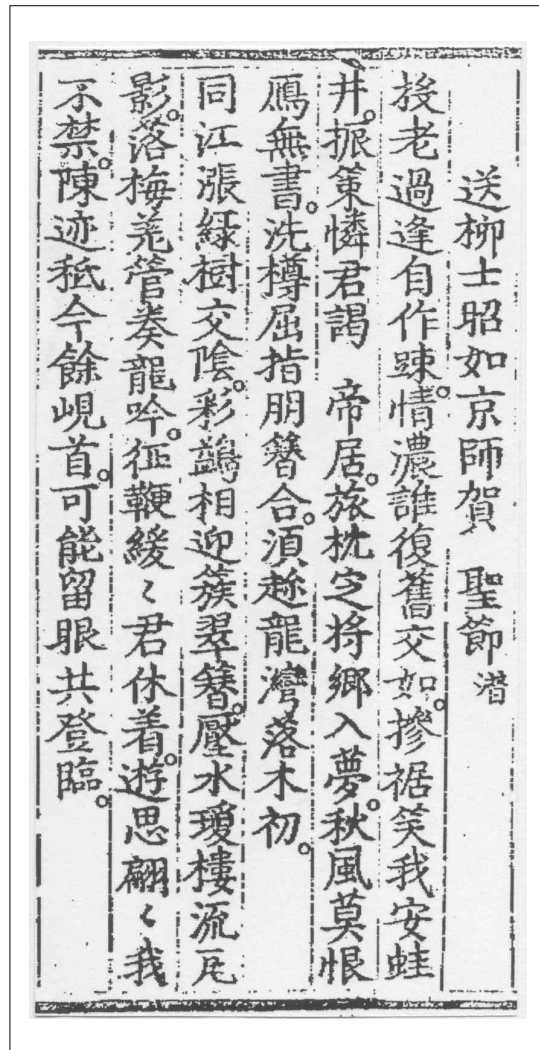 送柳士昭如京師賀 聖節
投老過逢自作踈。情濃誰復舊交如。摻裾笑我安蛙
井。振策憐君謁 帝居。旅枕定將鄉入夢。秋風莫恨
鴈無書。洗樽屈指朋簪合。須趂龍灣落木初。
同江漲綠樹交陰。彩鷁相迎簇翠簪。壓水瓊樓流瓦
影。落梅羌管奏龍吟。征鞭緩〻君休着。遊思翩〻我
不禁。陳迹秪今餘峴首。可能留眼共登臨。